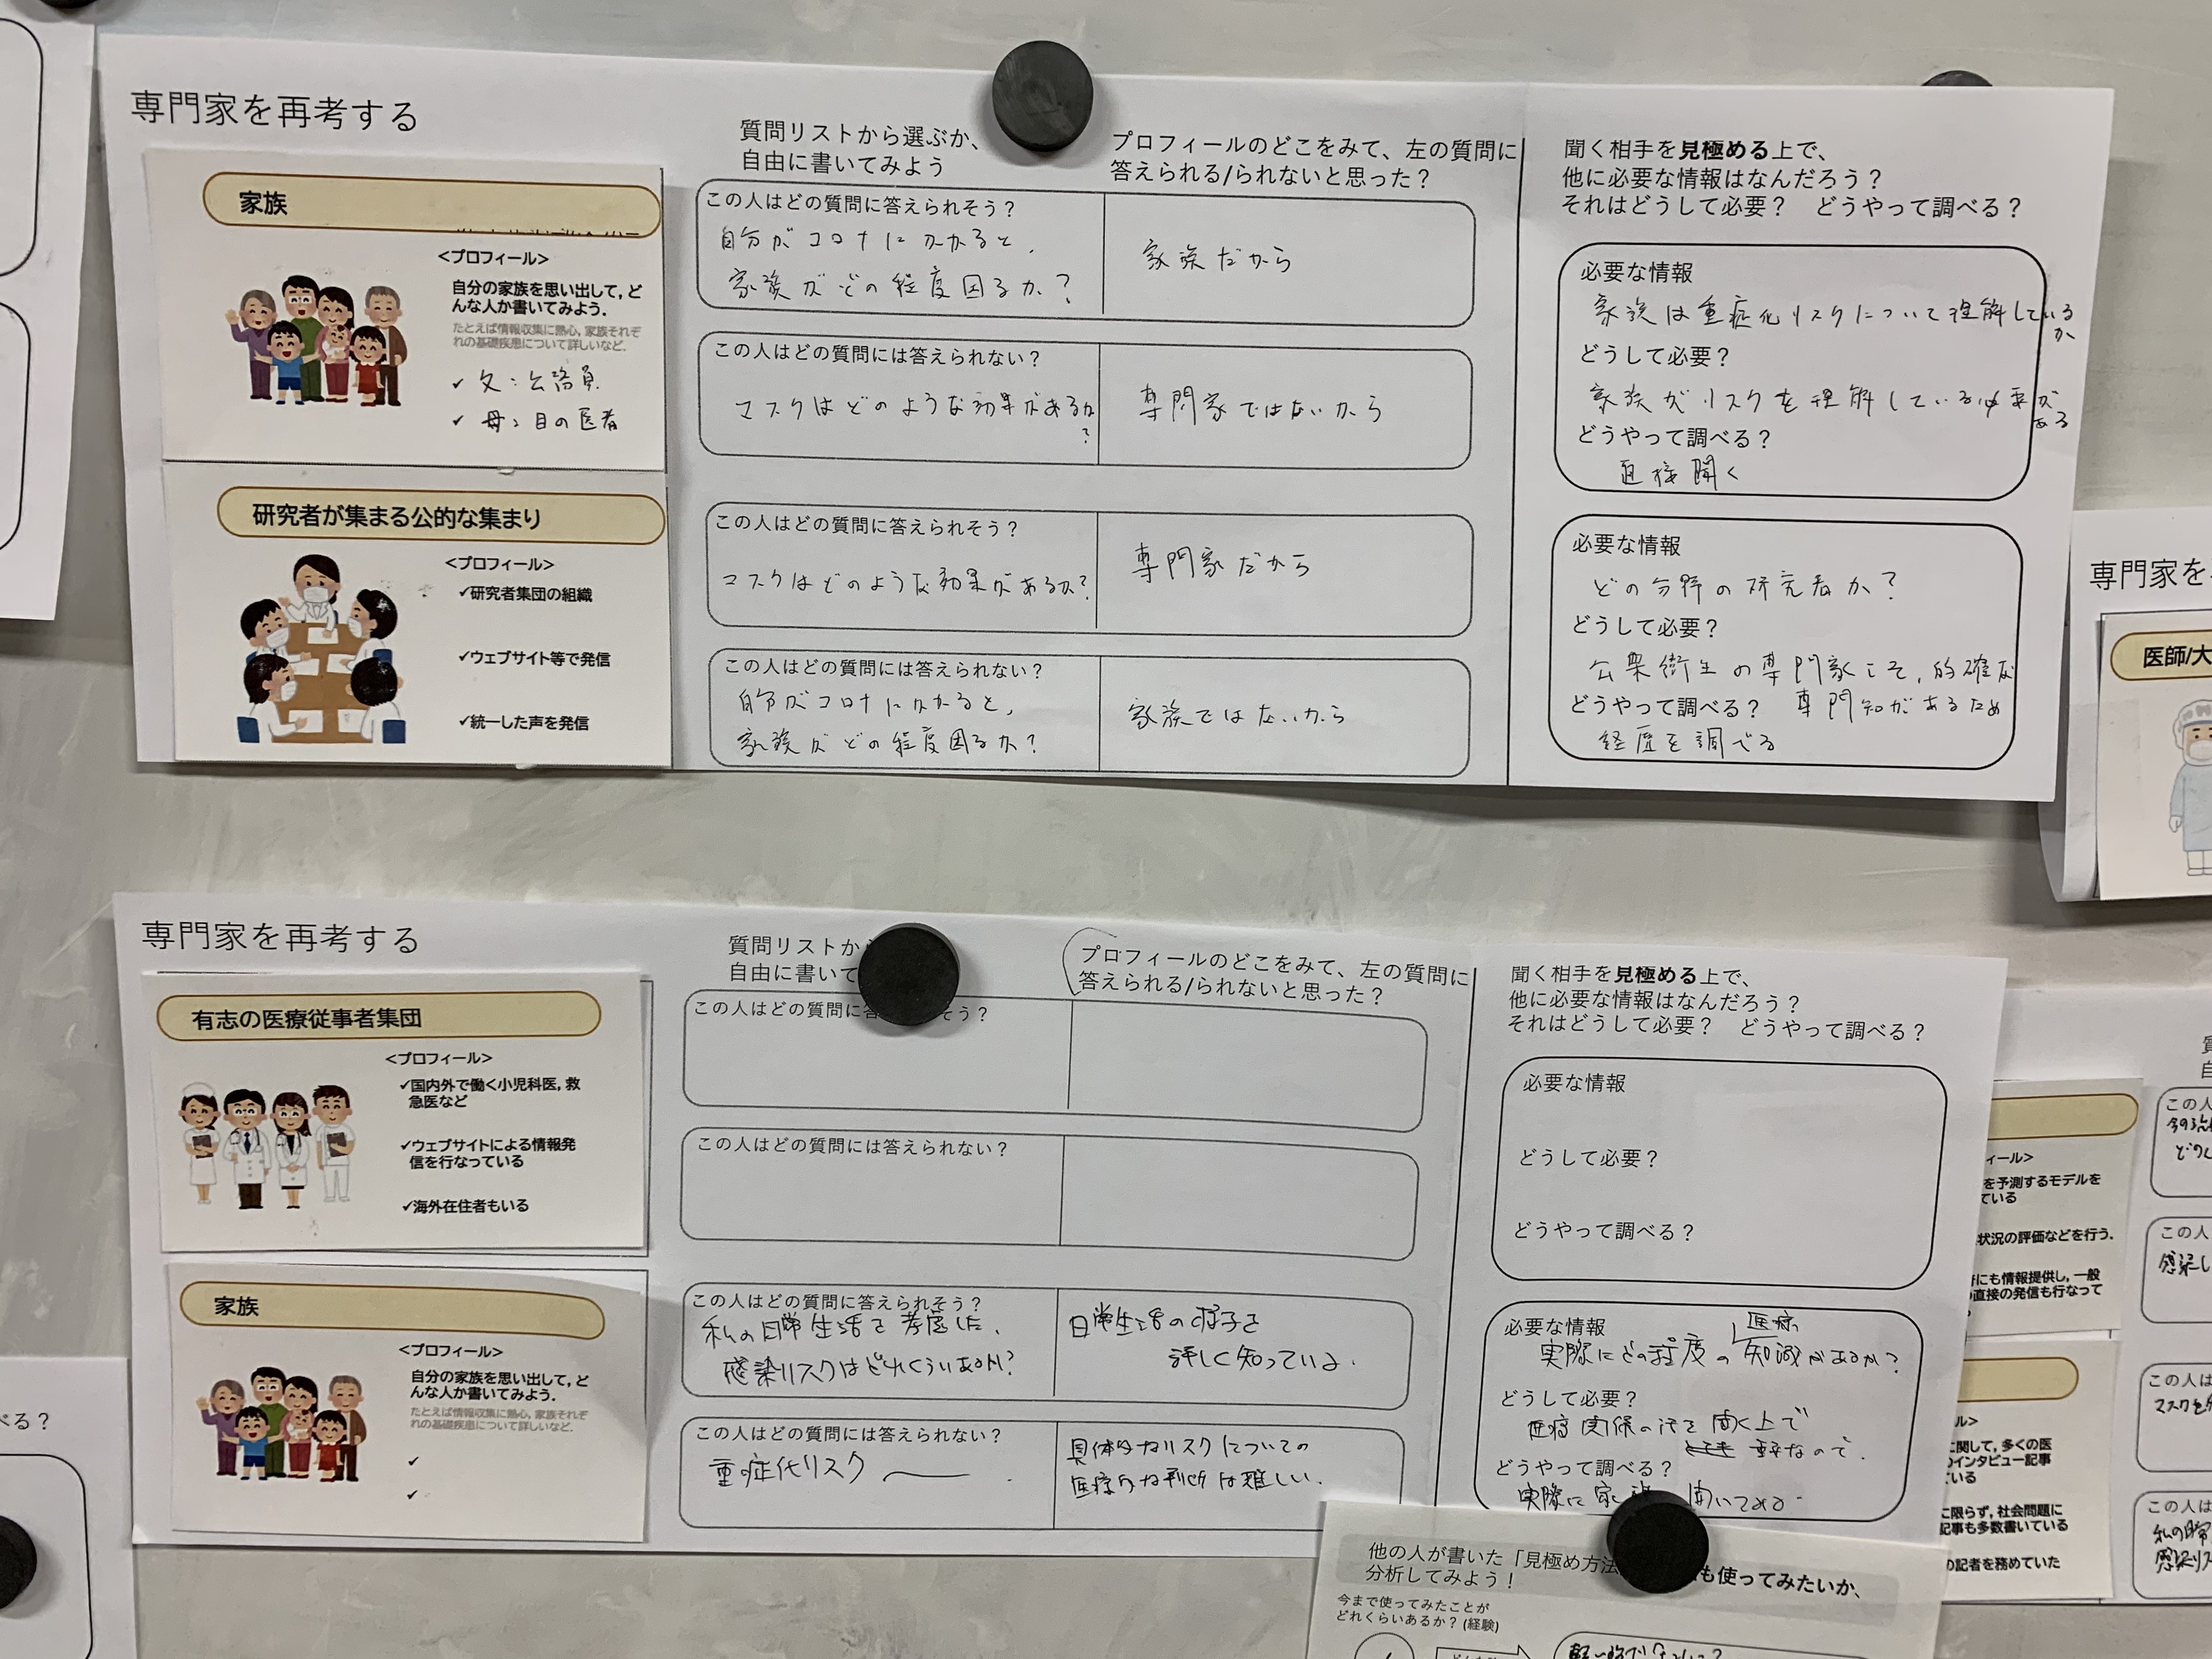 専門家を再考する
質問リストから選ぶか、
自由に書いてみよう
プロフィールのどこをみて、左の質問に
答えられる/られないと思った？
聞く相手を見極める上で、
他に必要な情報はなんだろう？
それはどうして必要？　どうやって調べる？
家族
<プロフィール>
自分の家族を思い出して，ど
んな人か書いてみよう．
たとえば情報収集に熱心，家族それぞ
れの基礎疾患について詳しいなど．
✓ 父：公務員
✓ 母：目の医者
この人はどの質問に答えられそう？
自分がコロナにかかると，
家族がどの程度困るか？
家族だから
この人はどの質問には答えられない？
マスクはどのような効果があるか
？
専門家ではないから
必要な情報
家族は重症化リスクについて理解している
か
どうして必要？
家族がリスクを理解している必要が
ある
どうやって調べる？
直接聞く
研究者が集まる公的な集まり
<プロフィール>
✓研究者集団の組織
✓ウェブサイト等で発信
✓統一した声を発信
この人はどの質問に答えられそう？
マスクはどのような効果があるか？
専門家だから
この人はどの質問には答えられない？
自分がコロナにかかると，
家族がどの程度困るか？
家族ではないから
必要な情報
どの分野の研究者か？
どうして必要？
公衆衛生の専門家こそ，的確な
どうやって調べる？　専門知があるため
経歴を調べる
専門家を
医師/大
専門家を再考する
質問リストか
自由に書いて
プロフィールのどこをみて、左の質問に
答えられる/られないと思った？
聞く相手を見極める上で、
他に必要な情報はなんだろう？
それはどうして必要？　どうやって調べる？
有志の医療従事者集団
<プロフィール>
✓国内外で働く小児科医，救
急医など
✓ウェブサイトによる情報発
信を行なっている
✓海外在住者もいる
この人はどの質問に答 そう？
この人はどの質問には答えられない？
必要な情報
どうして必要？
どうやって調べる？
家族
<プロフィール>
自分の家族を思い出して，ど
んな人か書いてみよう．
たとえば情報収集に熱心，家族それぞ
れの基礎疾患について詳しいなど．
✓
✓
この人はどの質問に答えられそう？
私の日常生活を考慮した，
感染リスクはどれくらいあるか？
日常生活の様子を
詳しく知っている．
この人はどの質問には答えられない？
重症化リスク
具体的なリスクについての
医療的な判断は難しい．
必要な情報
医療
実際にどの程度の知識があるか？
どうして必要？
医療関係の話を聞く上で
重要なので．
どうやって調べる？
実際に家 聞いてみる．
べる？
ィール>
を予測するモデルを
ている
状況の評価などを行う．
にも情報提供し，一般
直接の発信も行なって
ル>
に関して，多くの医
インタビュー記事
いる
に限らず，社会問題に
記事も多数書いている
の記者を務めていた
この人
どの
この人
感染し
この人は
マスクを
この人は
私の日常
感染リス
他の人が書いた「見極め方法 も使ってみたいか、
分析してみよう！
今まで使ってみたことが
どれくらいあるか？(経験)